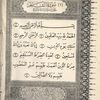 سورة الفاتحة
بسم الله الرحمن الرحيم
الحمد لله رب العالمين الرحمن الرحيم
ملك يوم الدين إياك نعبد وإياك نستعين
اهدنا الصراط المستقيم صراط الذين
أنعمت عليهم غير المغضوب
عليهم ولا الضالين